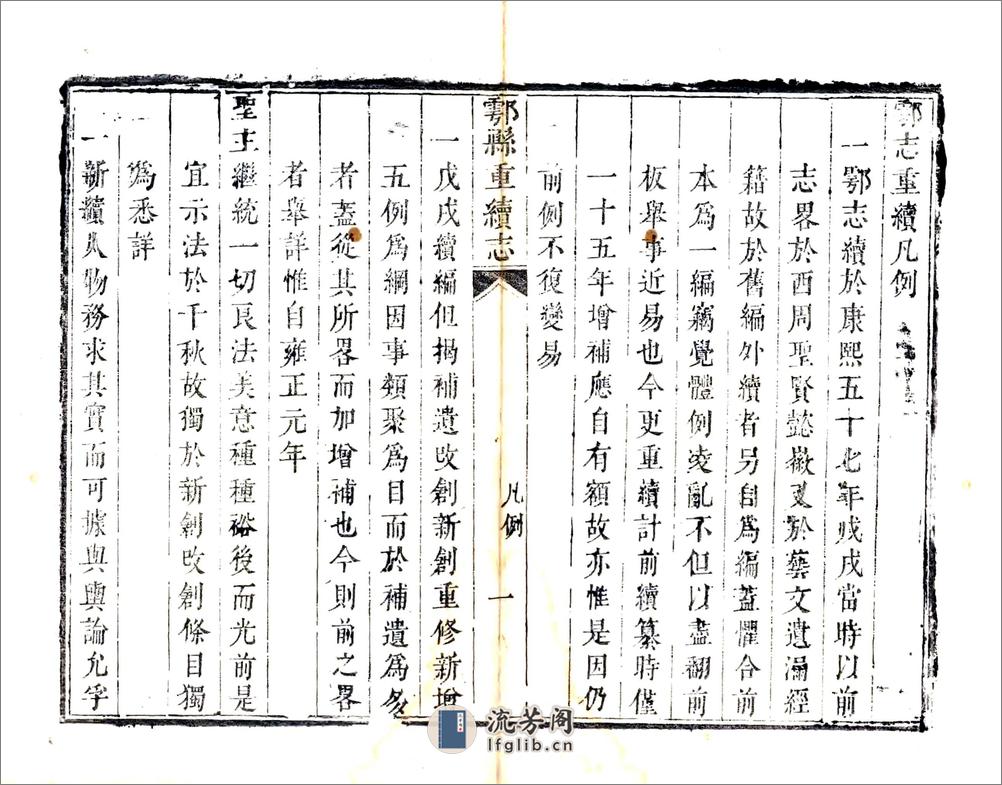 鄠志重續凡例
一鄠志續於康熙五十七年戊戌當時以前
志畧於西周聖賢懿徽又於藝文遺漏經
籍故於舊編外續者另自為編蓋懼合前
本為一編竊覺體例凌亂不但以盡翻前
板舉事近易也今更重續計前續纂時僅
一十五年增補應自有額故亦惟是因仍
前例不復變易
鄠縣重續志 凡例 一
一戊戌續編但揭補遺改創新創重修新增
五例為綱因事類聚為目而於補遺為多
者蓋從其所畧而加增補也今則前之畧
者舉詳惟自雍正元年
聖主繼統一切良法美意種種裕後而光前是
宜示法於千秋故獨於新創改創條目獨
為悉詳
一新續人物務求其實而可據與輿論允孚
流芳阁
lfglib.cn